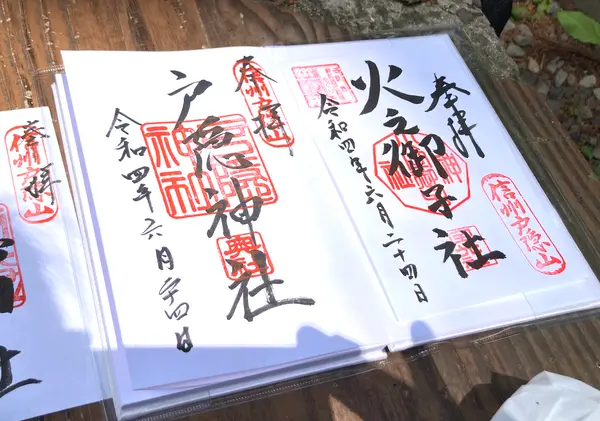 奉拝
信州戸隠山
火之御子社
令和四年六月二十四日
奉拝
信州戸隠山
戸隠神社
戸隠神社
令和四年六月廿四日
奉拝
信州戸隠山